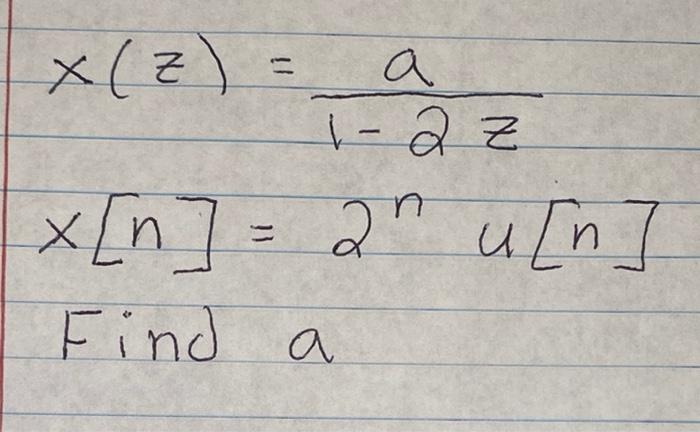 x(z) = a / (1 - 2z)
x[n] = 2^n u[n]
Find a